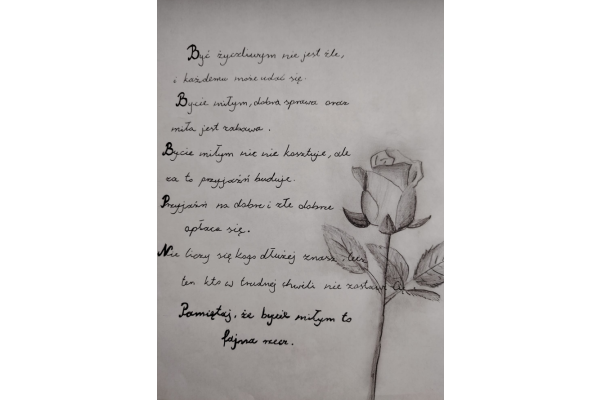 Być życzliwym nie jest źle,
i każdemu może udać się.
Bycie miłym, dobra sprawa oraz
miła jest zabawa.
Bycie miłym nic nie kosztuje, ale
za to przyjaźń buduje.
Przyjaźń na dobre i złe dobrze
opłaca się.
Nie liczy się kogo dłużej znasz, lecz
ten kto w trudnej chwili nie zostawi
Pamiętaj, że bycie miłym to
fajna rzecz.